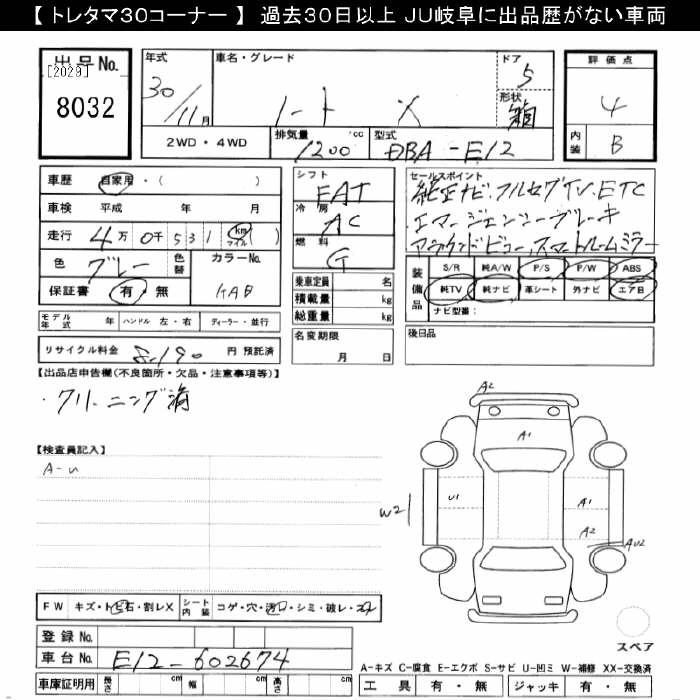 【 トレタマ30コーナー 】 過去30日以上 JU岐阜に出品歴がない車両
出品No.
[2029]
8032
年式
30/11月
車名・グレード
ノート X
ドア
5
形状
箱
評価点
4
内装
B
2WD・4WD
排気量
1200
cc
型式
DBA-E12
車歴 自家用・( )
車検 平成 年 月
走行 4万0千531 km マイル ( )
色 グレー 色替
カラーNo.
KAD
保証書 有・無
モデル年式 年 ハンドル 左・右 ディーラー・並行
リサイクル料金 8,190 円 預託済
シフト
FAT
冷房
AC
燃料
G
乗車定員 名
積載量 kg
総重量 kg
名変期限
月 日
セールスポイント
純正ナビ、フルセグTV、ETC
エマージェンシーブレーキ
アラウンドビュー、スマートルームミラー
装備品
S/R 純A/W P/S P/W ABS
純TV 純ナビ 革シート 外ナビ エアB
ナビ型番:
後日品
【出品店申告欄(不良箇所・欠品・注意事項等)】
・クリーニング済
【検査員記入】
A-U
A2
A1
U1
A1
W2
A2
AU2
スペア
FW キズ・トビ石・割レX シート内装 コゲ・穴・汚レ・シミ・破レ・スレ
登録No.
車台No. E12-602674
車庫証明用 長さ cm 幅 cm 高さ cm
A-キズ C-腐食 E-エクボ S-サビ U-凹ミ W-補修 XX-交換済
工具 有・無 ジャッキ 有・無